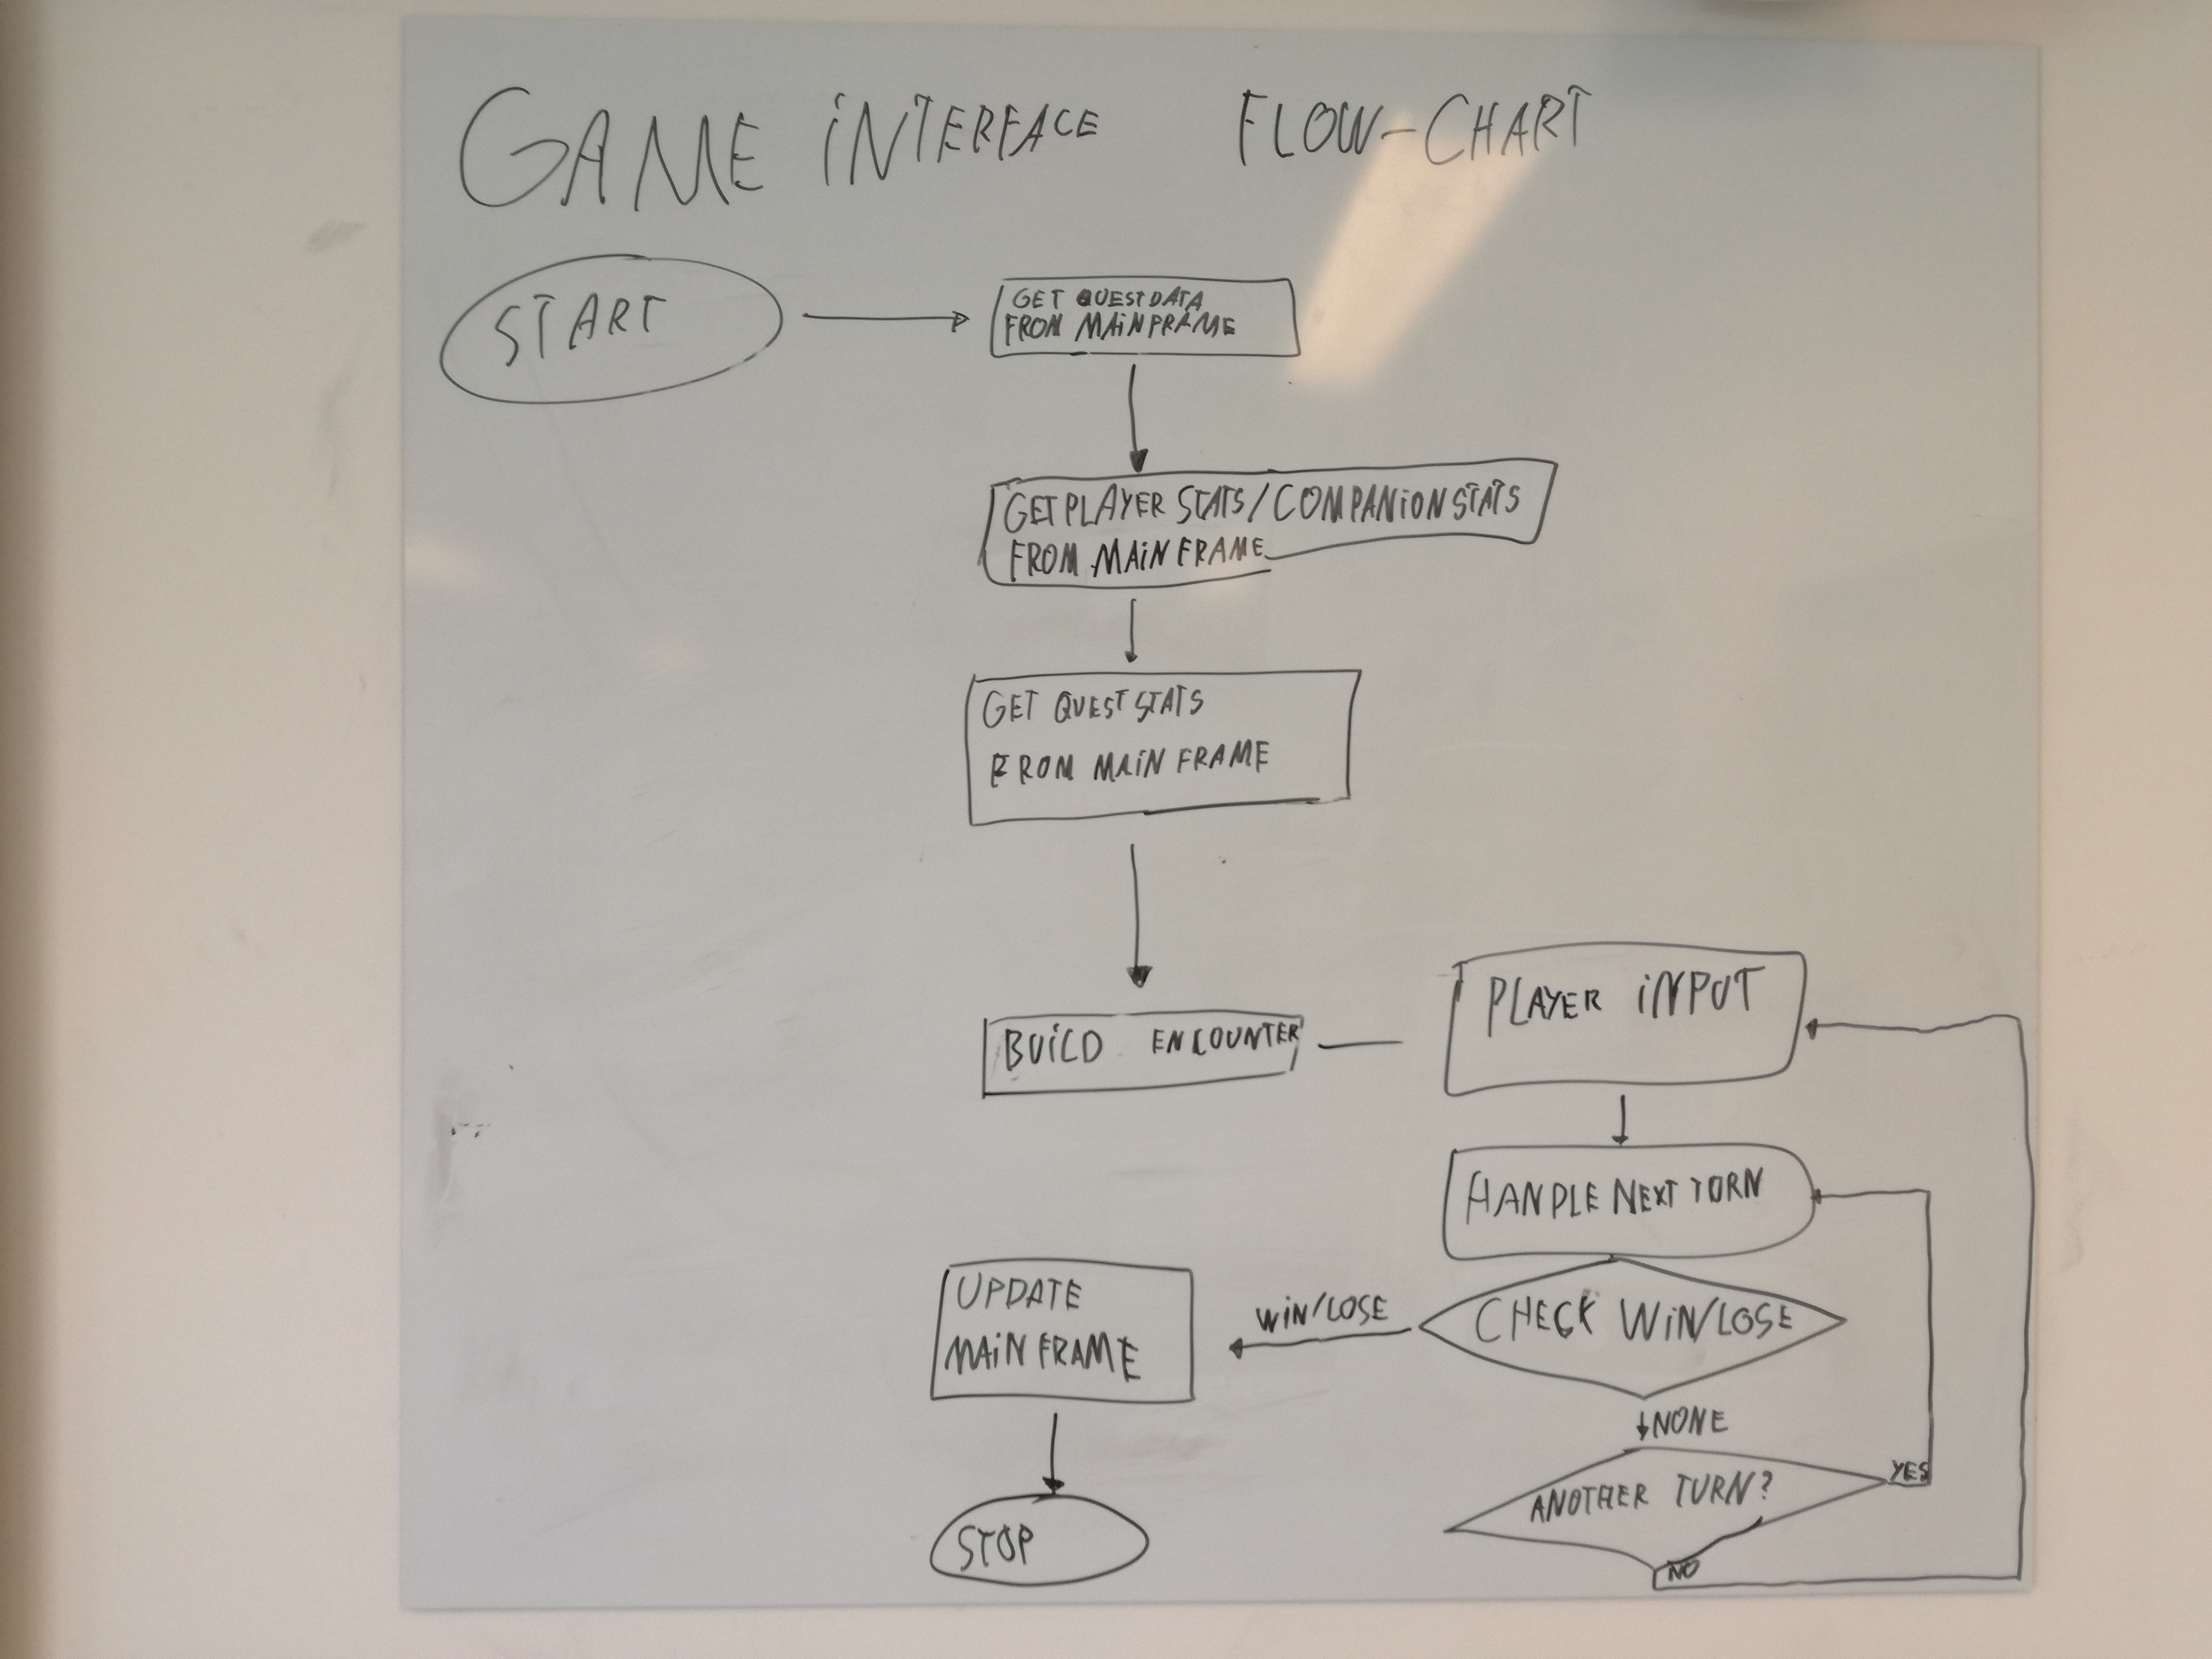 GAME iNTERFACE FLOW-CHART
START
GET QUESTDATA
FROM MAiNFRAME
GET PLAYER STATS/COMPANiON STATS
FROM MAiNFRAME
GET QUEST STATS
FROM MAiN FRAME
BUiLD ENCOUNTER
PLAYER iNPUT
HANDLE NEXT TURN
CHECK WiN/LOSE
WiN/LOSE
UPDATE
MAiNFRAME
NONE
ANOTHER TURN?
YES
NO
STOP